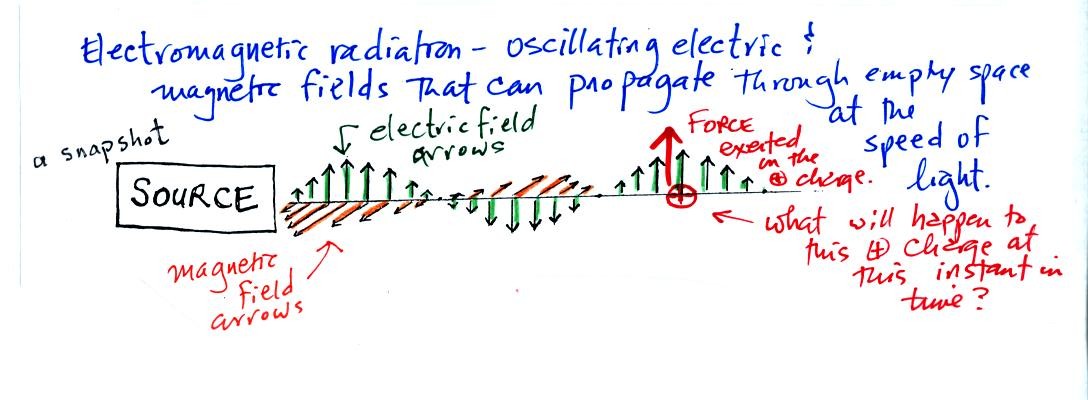 Electromagnetic radiation - oscillating electric &
magnetic fields that can propagate through empty space
at the
speed of
light.
a snapshot
SOURCE
electric field
arrows
magnetic
field
arrows
FORCE
exerted
on the
⊕ charge.
what will happen to
this ⊕ charge at
this instant in
time?